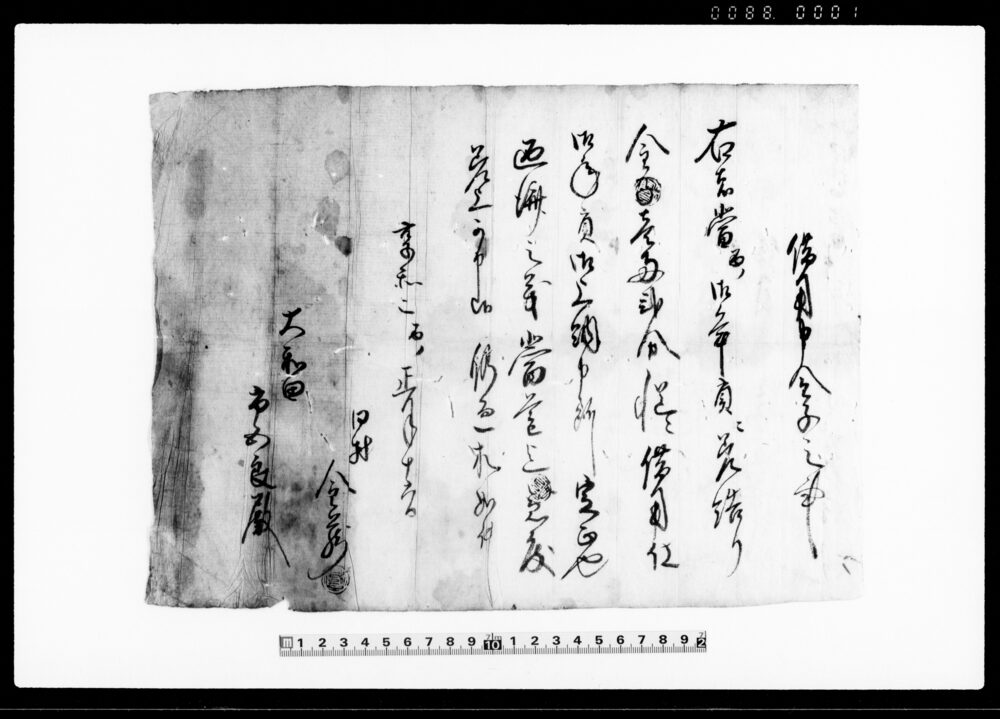 0088 0001
借用申金子之事
右者當酉御年貢ニ差詰り
金壱両弐分慥ニ借用仕
御年貢御上納申所実正也
返済之義當
差上可申候 仍而一札如件
享和元酉正月十六日
同村
金蔵
大和田
市五良殿
m 1 2 3 4 5 6 7 8 9 10 1 2 3 4 5 6 7 8 9 2